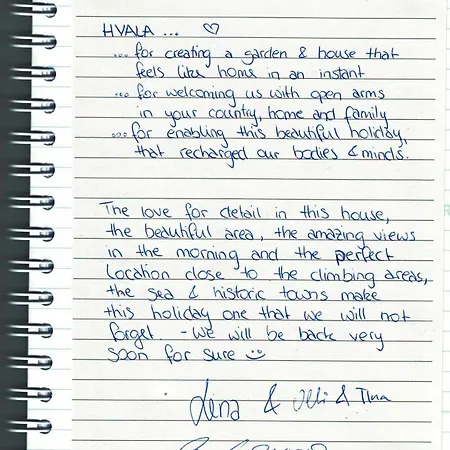 HVALA ... ♡
... for creating a garden & house that
feels like home in an instant
... for welcoming us with open arms
in your country, home and family
... for enabling this beautiful holiday,
that recharged our bodies & minds.
The love for detail in this house,
the beautiful area, the amazing views
in the morning and the perfect
location close to the climbing areas,
the sea & historic towns make
this holiday one that we will not
forget. - We will be back very
soon for sure ☺
Lena & Olli & Tina